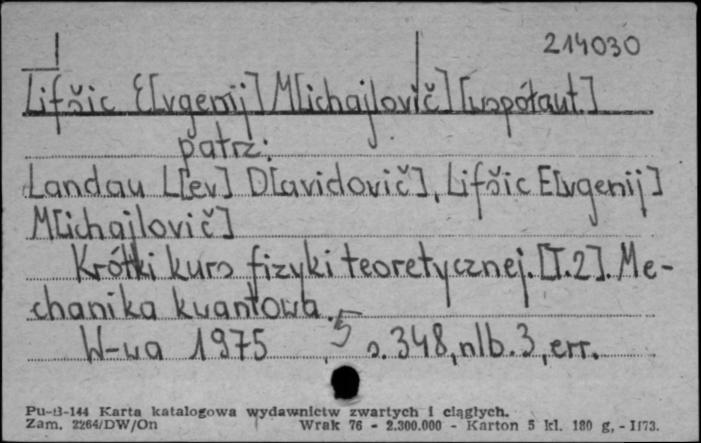 214030
Lifšic E[vgenij] M[ichajlovič] [współaut.]
patrz:
Landau L[ev] D[avidovič], Lifšic E[vgenij]
M[ichajlovič]
Krótki kurs fizyki teoretycznej. [T.2]. Me-
chanika kwantowa.
W-wa 1975 s. 348, nlb. 3, err.
Pu-B-144 Karta katalogowa wydawnictw zwartych i ciągłych.
Zam. 2264/DW/On Wrak 76 - 2.300.000 - Karton 5 kl. 180 g, - II73.